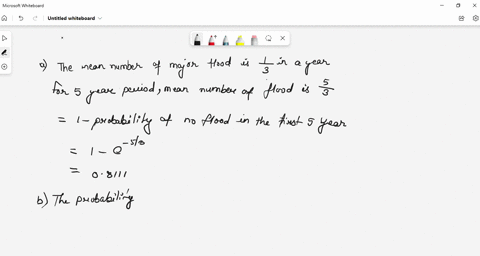 Microsoft Whiteboard
Untitled whiteboard
a) The mean number of major flood is 1/3 in a year
for 5 year period, mean number of flood is 5/3
= 1 - probability of no flood in the first 5 year
= 1 - e^-5/3
= 0.8111
b) The probability